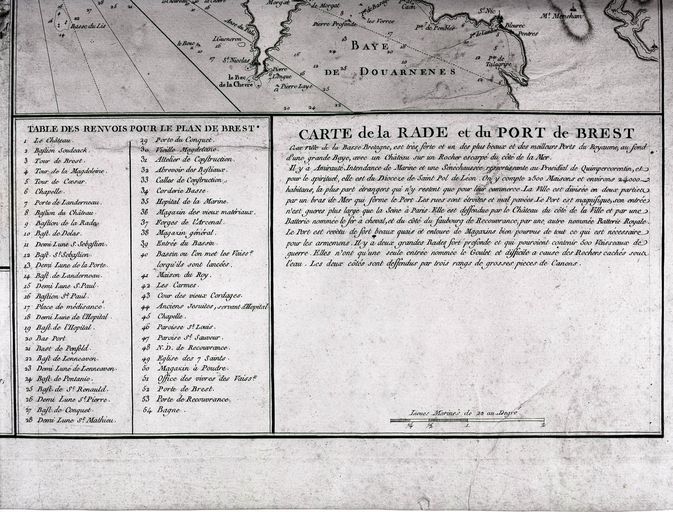 Basse du Lis
Morgat
Pierre Profonde
les Verres
Cain
Pte. de Penbleir
St. Nic
Plourec
Pentres
Mt. Menehom
BAYE
DE DOUARNENES
le Bouc
St. Nicolas
Pierre Longue
Pierre Laye
le Bec de la Chevre
Pte. de Talagrip
TABLE DES RENVOIS POUR LE PLAN DE BREST.
1 Le Château.
2 Bastion Soudeack.
3 Tour de Brest.
4 Tour de la Magdeleine.
5 Tour de Cæsar.
6 Chapelle.
7 Porte de Landerneau.
8 Bastion du Château.
9 Bastion de la Rade.
10 Bast. de Dalas.
11 Demi Lune S. Sebastien.
12 Bast. St. Sebastien.
13 Demi Lune de la Porte.
14 Bast. de Landerneau.
15 Demi Lune S. Paul.
16 Bastion St. Paul.
17 Place de médisance.
18 Demi Lune de l'Hopital
19 Bast. de l'Hopital.
20 Bas Port.
21 Bast de Penfeld.
22 Bast. de Lonneavon.
23 Demi Lune de Lonneavon.
24 Bast. de Pontanio.
25 Bast. de St. Renauld.
26 Demi Lune St. Pierre.
27 Bast. de Conquet.
28 Demi Lune St. Mathieu.
29 Porte du Conquet.
30 Vieille Magdelaine.
31 Attelier de Construction.
32 Abrevoir des Visseaux.
33 Calles de Construction.
34 Corderie Basse.
35 Hopital de la Marine.
36 Magasin des vieux matériaux.
37 Forges de l'Arcenal.
38 Magazin général.
39 Entrée du Bassin.
40 Bassin ou l'on met les Vaisse.
lorsqu'ils sont lancées.
41 Maison du Roy.
42 Les Carmes.
43 Cour des vieux Cordages.
44 Anciens Jesuites, servant d'Hopital
45 Chapelle.
46 Paroisse St. Louis.
47 Paroise St. Sauveur.
48 N. D. de Recouvrance.
49 Eglise des 7 Saints.
50 Magazin à Poudre.
51 Office des vivres des Vaisse.
52 Porte de Brest.
53 Porte de Recouvrance.
54 Bagne.
CARTE de la RADE et du PORT de BREST
Cette ville de la Basse Bretagne, est très forte et un des plus beaux et des meilleurs Ports du Royaume, au fond
d'une grande Baye, avec un Château sur un Rocher escarpé du côté de la Mer.
Il y a Amirauté, Intendance de Marine et une Sénéchaussée ressortissante au Présidial de Quimpercorentin, et
pour le spirituel, elle est du Diocèze de Saint Pol de Léon. On y compte 2500 Maisons et environs 24000
habitans, la plus part étrangers qui n'y restent que pour leur commerce. La Ville est divisée en deux parties
par un bras de Mer qui forme le Port. Les rues sont étroites et mal pavées. Le Port est magnifique, son entrée
n'est gueres plus large que la Seine à Paris. Elle est deffendue par le Château du côté de la Ville et par une
Batterie nommée le fer à cheval, et du côté du faubourg de Recouvrance, par une autre nommée Batterie Royale.
Le Port est revêtu de fort beaux quais et entouré de Magazins bien pourvus de tout ce qui est necessaire
pour les armemens. Il y a deux grandes Rades fort profonde et qui pouroient contenir 500 Vaisseaux de
guerre. Elles n'ont qu'une seule entrée nommée le Goulet et difficile a cause des Rochers cachés sous
l'eau. Les deux côtés sont deffendus par trois rangs de grosses pieces de Canons.
Lieues Marines de 20 au Degre
1/4 1/2 1 2